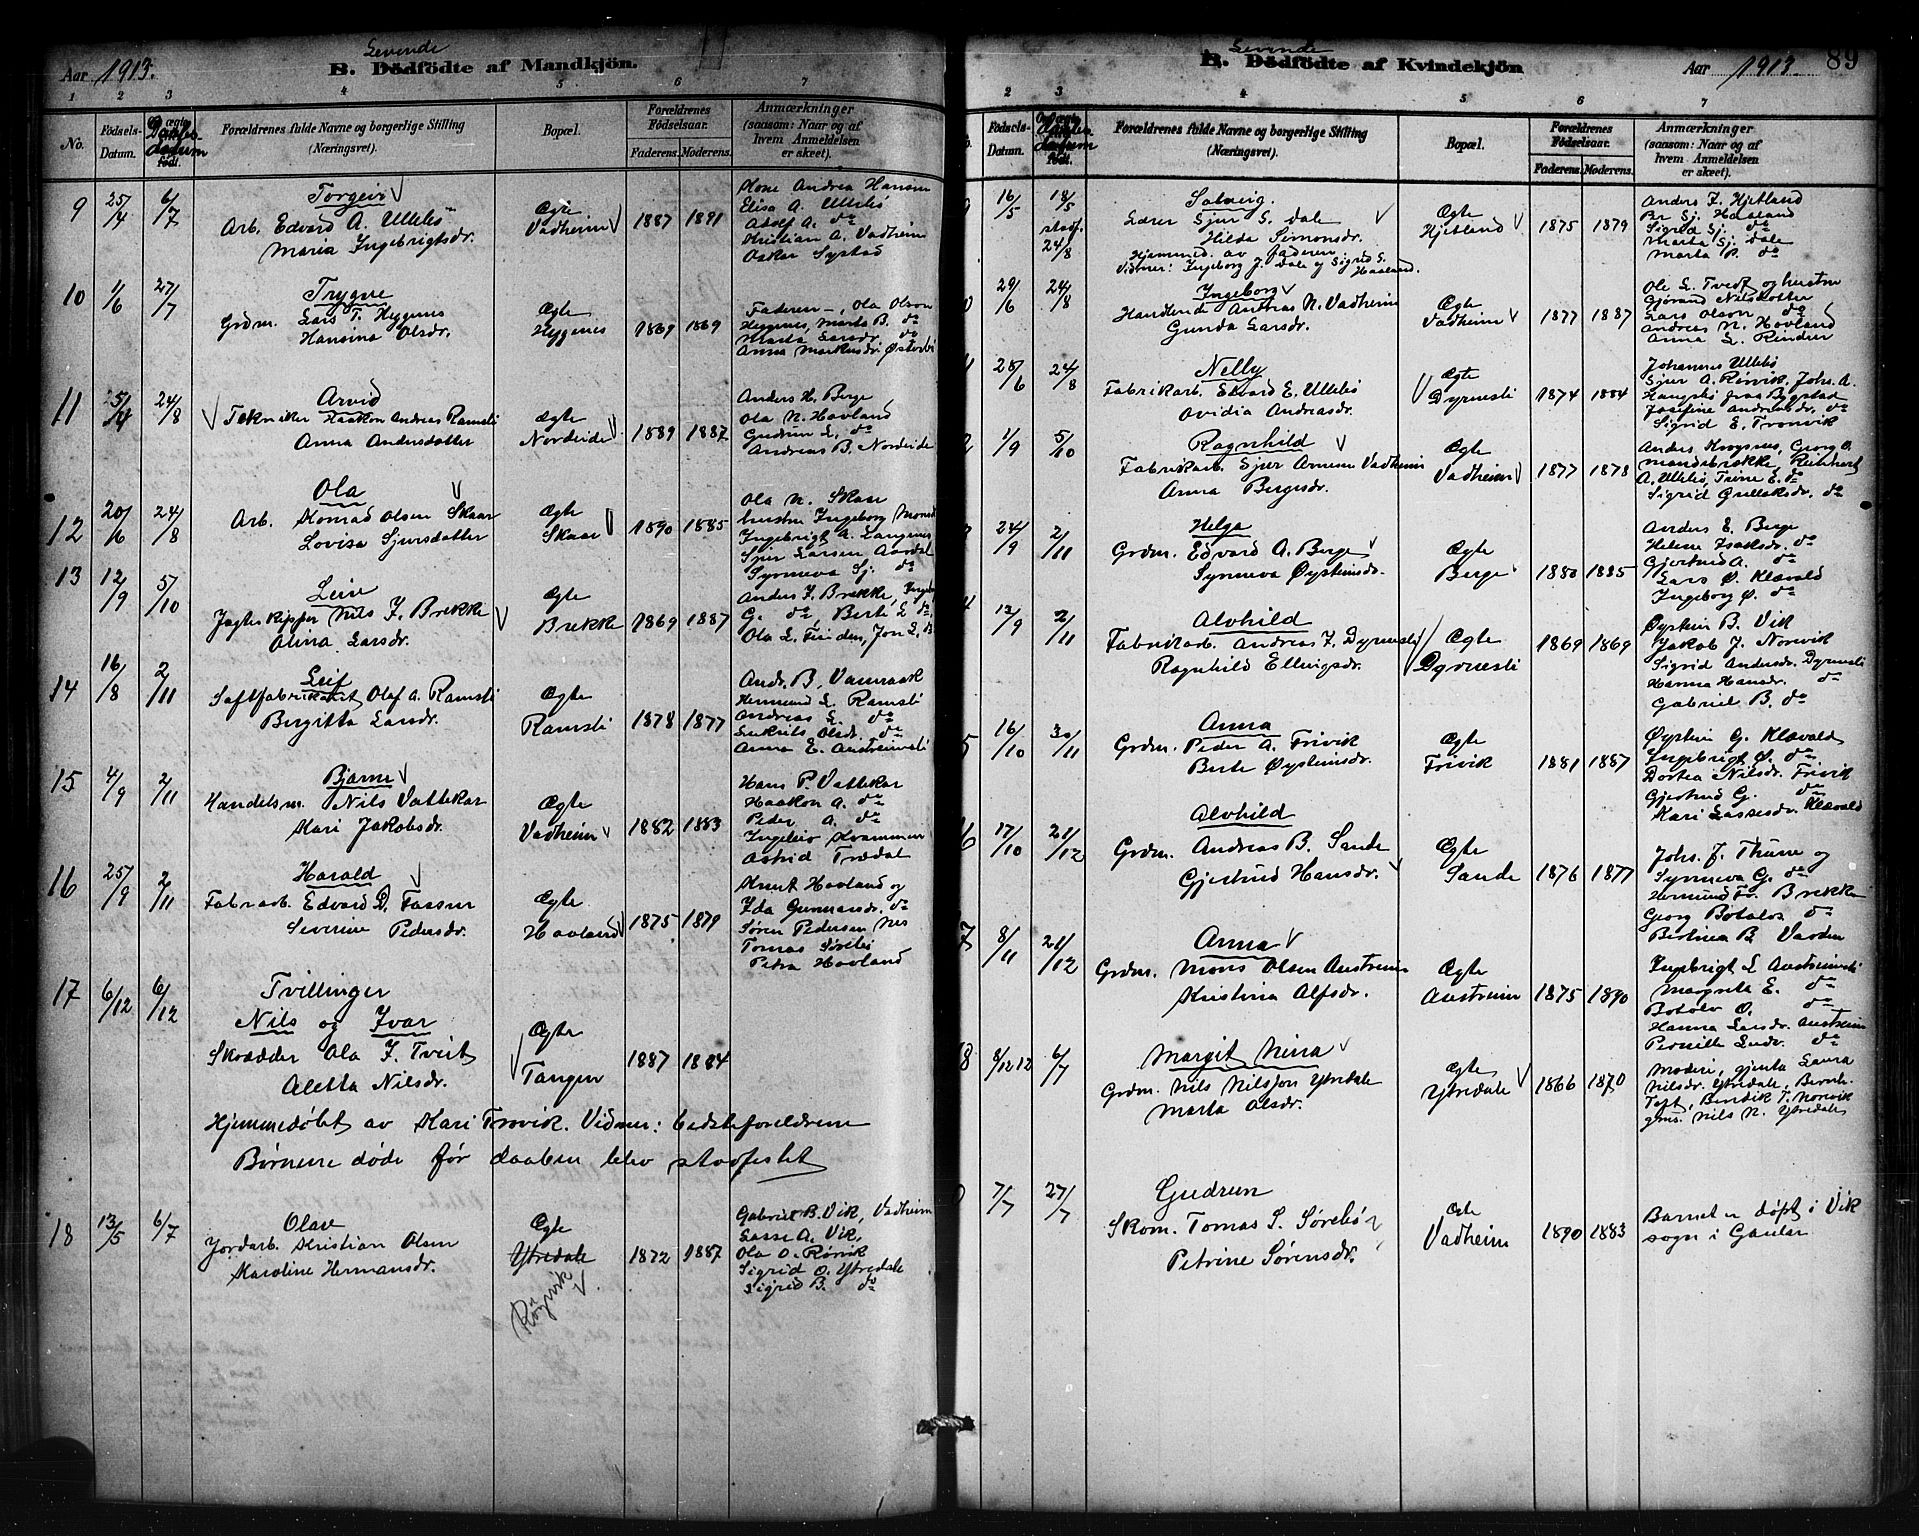 Aar 1913.
Levende
B. Dödfödte af Mandkjön.
1 2 3 4 5 6 7
No.
Födsels-
Datum.
Daabs-
datum
Forældrenes fulde Navne og borgerlige Stilling
(Næringsvei).
Bopæl.
Forældrenes
Födselsaar.
Faderens. Moderens.
Anmærkninger
(saasom: Naar og af
hvem Anmeldelsen
er skeet).
9 25/4 6/7
Torgeir
Arb. Edvard A. Ullebö
Maria Ingebrigtsdr.
Ægte
Vadheim
1887 1891
Kone Andrea Hansen
Elisa A. Ullebö
Adolf A. do
Kristian A. Vadheim
Oskar Systad
10 1/6 27/7
Trygve
Grdm. Lars T. Hygenes
Hansina Olsdr.
Ægte
Heggenes
1869 1869
Faderen, Ola Olson
Heggenes, Marta B. do
Marta Larsdr. do
Anna Markusdr.
11 24/8
Arvid
Tekniker Haakon Andreas Ramsli
Anna Andersdatter
Ægte
Nordeide
1889 1887
Anders H. Berge
Ola N. Hovland
Gudrun L. do
Andreas B. Nordeide
12 20/6 24/8
Ola
Arb. Konrad Olsen Skaar
Lovisa Sjursdatter
Ægte
Skaar
1890 1885
Ola N. Skaar
hustru Ingeborg Monsd
Ingebrigt A. Langenes
Sjur Larsen Aardal
Synneva Sj. do
13 12/9 5/10
Leiv
Jagteskipper Nils J. Brekke
Olina Larsdr.
Ægte
Brekke
1869 1887
Anders J. Brekke,
G. do, Berte L do,
Ola L. Finden, Jon L. B
14 16/8 2/11
Leif
Saftfabrikant Olaf A. Ramsli
Birgitta Larsdr.
Ægte
Ramsli
1878 1877
Andr. B. Vamraak
Hermund L. Ramsli
Andreas L. do
Olsdr. do
Anna E. Austreimsli
15 4/9 2/11
Bjarne
Handelsm. Nils Vattekar
Kari Jakobsdr.
Ægte
Vadheim
1882 1883
Hans P. Vattekar
Haakon A. do
Peder A. do
Ingeleiv Kvammen
Astrid Trædal
16 25/9 2/11
Harald
Fabr.arb. Edvard D. Tasser
Severine Pedersdr.
Ægte
Hovland
1875 1879
Knut Hovland og
Ida Gunnarsdr. do
Søren Pedersen Nes
Tomas Sørebö
Petra Hovland
17 6/12 6/12
Tvillinger
Nils og Ivar
Skrædder Ola J. Tveit
Aletta Nilsdr.
Ægte
Tangen
1887 1884
Hjemmedøbt av Kari Trovik. Vidner: bedsteforeldrene
Børnene døde før daaben blev stadfestet
18 13/5 6/7
Olav
Jordarb. Kristian Olsen
Karoline Hermansdr.
Ægte
Ytredale
Rörvik
1872 1887
Gabriel B. Vik, Vadheim
Lasse A. Vik,
Ola O. Rörvik
Sigrid O. Ytredale
Sigrid B. do
Levende
B. Dödfödte af Kvindekjön
Aar 1913
89
2 3 4 5 6 7
Födsels-
Datum.
datum
Forældrenes fulde Navne og borgerlige Stilling
(Næringsvei).
Bopæl.
Forældrenes
Födselsaar.
Faderens. Moderens.
Anmærkninger
(saasom: Naar og af
hvem Anmeldelsen
er skeet).
16/5 18/5
stadf.
24/8
Solveig
Lærer Sjur S. Dale
Hilda Simonsdr.
Hjemmed. av faderen
Vidner: Ingeborg J. Dale og Sigrid S. Haaland.
Ægte
Hjetland
1875 1879
Anders J. Hjetland
Br Sj. Haaland
Sigrid Sj. do
Marta Sj. Dale
Marta P. do
29/6 24/8
Ingeborg
Handlende Andreas N. Vadheim
Gunda Larsdr.
Ægte
Vadheim
1877 1887
Ole L. Tvedt og hustru
Gjørand Nilsdotter
Lars Olson do
Andreas N. Hovland
Anna L. Rendrer
28/6 24/8
Nelly
Fabrikarb. Edvard E. Ullebö
Ovidia Andreasdr.
Ægte
Dyrnesli
1874 1884
Johannes Ullebö
Sjur A. Rörvik, Johs. A.
fra Bygstad
Josefine Andreasdr. do
Sigrid E. Tronvik
1/9 5/10
Ragnhild
Fabrikarb. Sjur Arnesen Vadheim
Anna Bergesdr.
Ægte
Vadheim
1877 1878
Anders Georg O.
A. Ullebö, Trine E. do
Sigrid Gulleksdr. do
24/9 2/11
Helga
Grdm. Edvard A. Berge
Synneva Øysteinsdr.
Ægte
Berge
1880 1885
Anders E. Berge
Helene Isaksdr. do
Gjertrud A. do
Lars Ø. Klævold
Ingeborg Ø. do
12/9 2/11
Alvhild
Fabrikarb. Andreas J. Dyrnesli
Ragnhild Ellingsdr.
Ægte
Dyrnesli
1869 1869
Øystein B. Vik
Jakob J. Norevik
Sigrid Andersdr. Dyrnesli
Hanna Hansdr. do
Gabriel B. do
16/10 30/11
Anna
Grdm. Peder A. Frivik
Berte Øysteinsdr.
Ægte
Frivik
1881 1887
Øystein G. Klævold
Ingebrigt Ø. do
Dortea Nilsdr. Frivik
Gjertrud G. do
Kari Lassesdr. Klævold
17/10 21/12
Alvhild
Grdm. Andreas B. Sande
Gjertrud Hansdr.
Ægte
Sande
1876 1877
Johs. J. Thune og
Synneva G. do
Hermund Fr. Brekke
Georg Botolvs do
Bertina B. Varden
8/11 21/12
Anna
Grdm. Mons Olsen Austreim
Kristina Alfsdr.
Ægte
Austreim
1875 1890
Ingebrigt L Austreimsli
Margrete E. do
Botolv O. do
Hanna Larsdr. Austreim
Pernille Ludr. do
8/12 12 6/7
Margit Nina
Grdm. Nils Nilsson Ytredale
Marta Olsdr.
Ægte
Ytredale
1866 1870
Moderi, gjenta Laura
Nilsdr. Ytredale, Bernh.
Toft, Bendik T. Norevik
gms. Nils N. Ytredale
7/7 27/7
Gudrun
Skom. Tomas S. Sørebö
Petrine Sørensdr.
Ægte
Vadheim
1890 1883
Barnet er døpt i Vik
sogn i Gaular